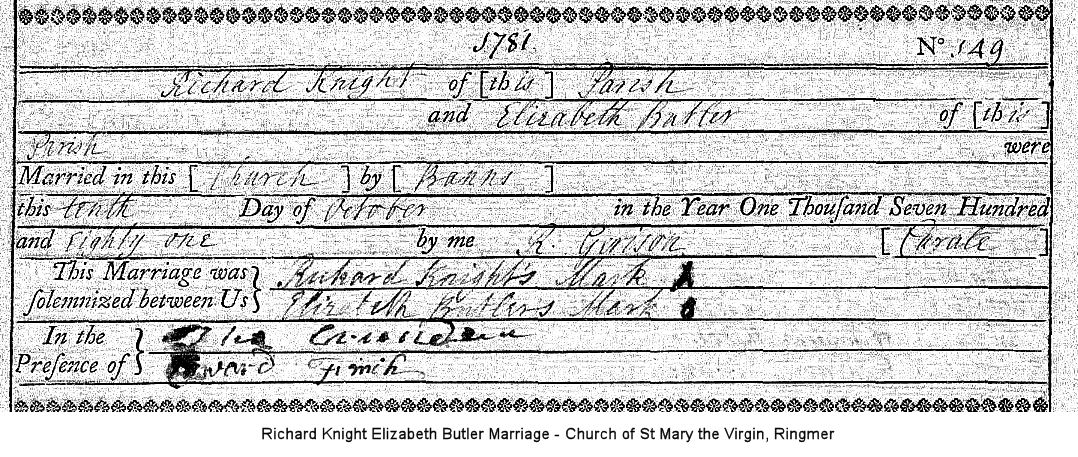 1781. No. 149
Richard Knight of [this] Parish
and Elizabeth Butler of [this]
Parish were
Married in this [Church] by [Banns]
this tenth Day of October in the Year One Thouſand Seven Hundred
and Eighty one by me R. [Curate]
This Marriage was } Richard Knight's Mark
ſolemnized between Us } Elizabeth Butler's Mark
In the }
Preſence of } Finch
Richard Knight Elizabeth Butler Marriage - Church of St Mary the Virgin, Ringmer